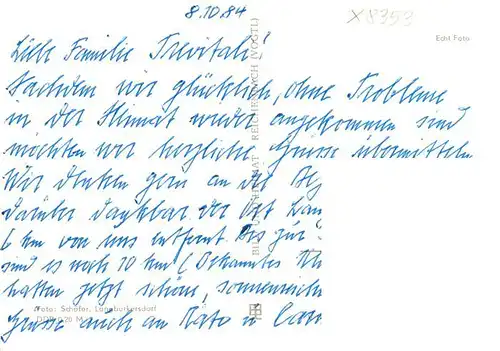 8.10.84
X8353
Echt Foto
Liebe Familie Trevitali!
Nachdem wir glücklich, ohne Probleme
in der Heimat wieder angekommen sind
möchten wir herzliche Grüsse übermitteln
Wir denken gern an die
darüber dankbar der Ort
6 km von uns entfernt. Bis zur
sind es noch 10 km (Bekanntes
hatten jetzt schöne, sonnenreiche
Grüsse auch an Räto u.
BILD UND HEIMAT REICHENBACH (VOGTL)
Foto: Schäfer, Langburkersdorf
DDR 0,20 M